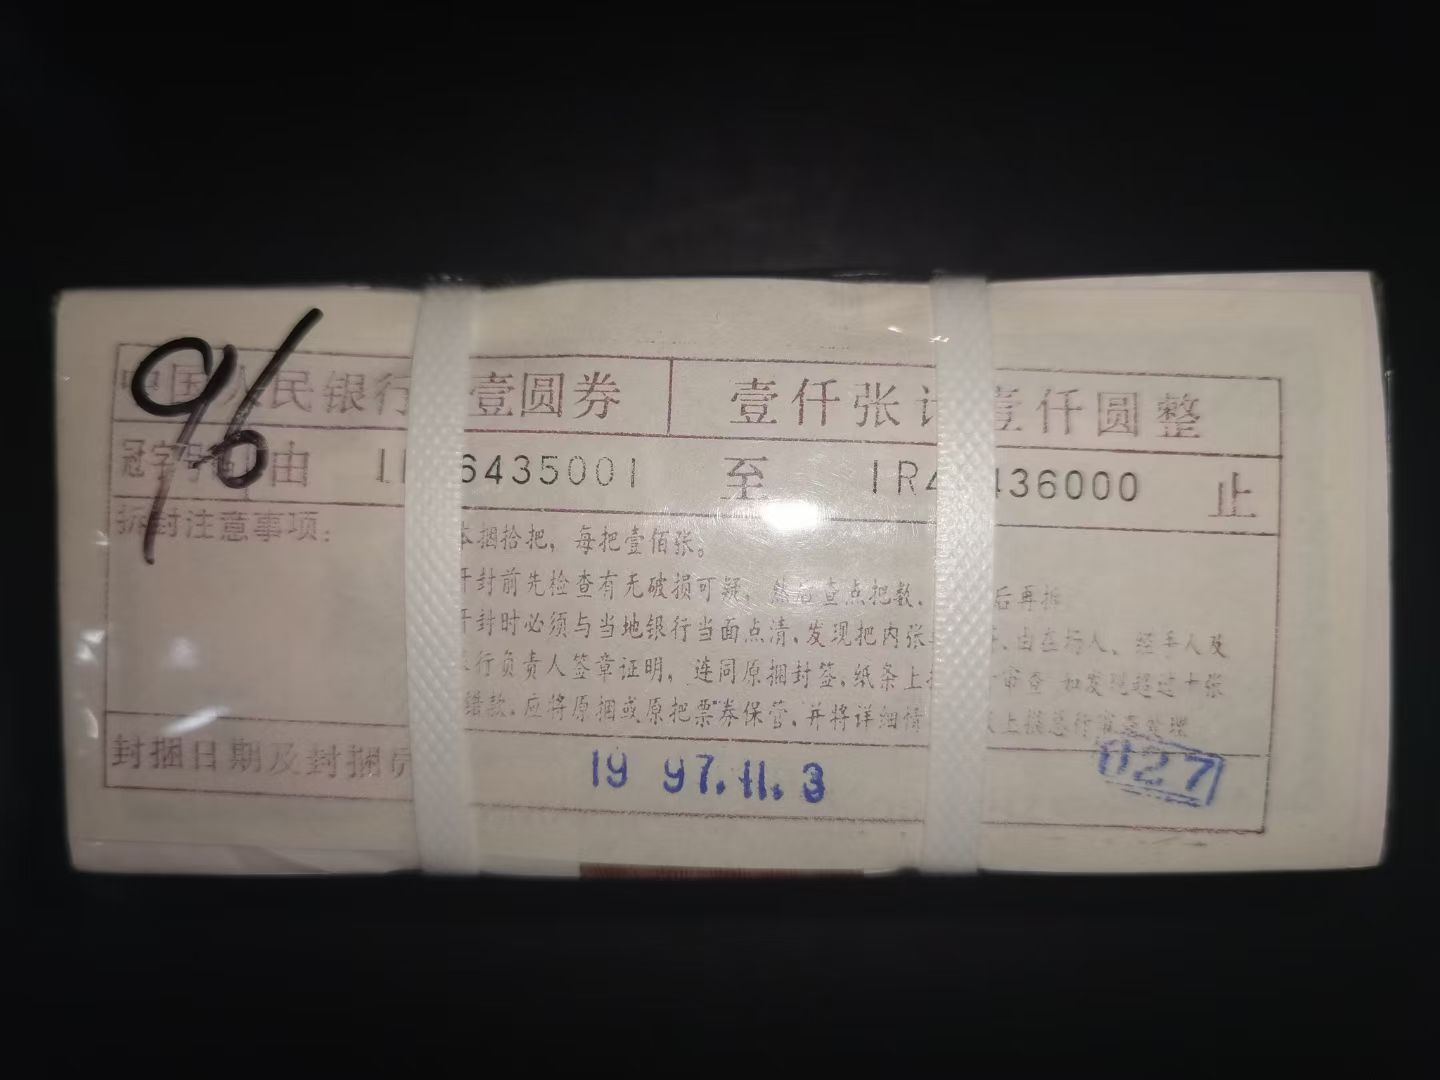 96
中国人民银行 壹圆券 壹仟张计壹仟圆整
冠字号 由 6435001 至 1R4 436000 止
拆封注意事项：
本捆拾把，每把壹佰张。
开封前先检查有无破损可疑，然后查点把数， 后再拆
开封时必须与当地银行当面点清、发现把内张 由在场人、经手人及
行负责人签章证明，连同原捆封签，纸条上 审查 如发现超过十张
错款、应将原捆或原把票券保管、并将详细情
封捆日期及封捆员
1997.11.3
027